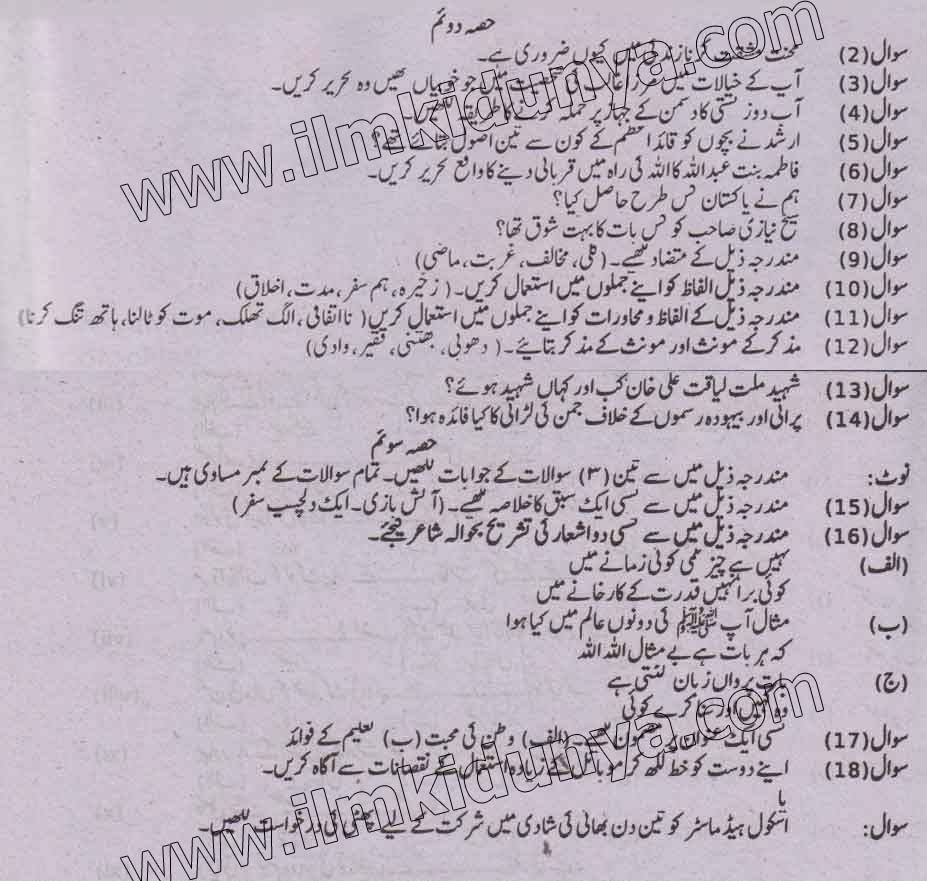 حصہ دوئم
سوال(2) محنت مشقت کرنا زندگی میں کیوں ضروری ہے۔
سوال(3) آپ کے خیالات میں مرزا غالب کی شخصیت میں جو خوبیاں تھیں وہ تحریر کریں۔
سوال(4) آب دوز کشتی کا دشمن کے جہاز پر حملہ کرنے کا طریقہ لکھیں۔
سوال(5) ارشد نے بچوں کو قائداعظم کے کون سے تین اصول بتائے تھے؟
سوال(6) فاطمہ بنت عبداللہ کا اللہ کی راہ میں قربانی دینے کا واقع تحریر کریں۔
سوال(7) ہم نے پاکستان کس طرح حاصل کیا؟
سوال(8) شیخ نیازی صاحب کو کس بات کا بہت شوق تھا؟
سوال(9) مندرجہ ذیل کے متضاد لکھیے۔ (کلی، مخالف، غربت، ماضی)
سوال(10) مندرجہ ذیل الفاظ کو اپنے جملوں میں استعمال کریں۔ ( زخیرہ، ہم سفر، مدت، اخلاق)
سوال(11) مندرجہ ذیل کے الفاظ و محاورات کو اپنے جملوں میں استعمال کریں( نااتفاقی، الگ تھلگ، موت کو ٹالنا، ہاتھ تنگ کرنا)
سوال(12) مذکر کے مونث اور مونث کے مذکر بتایئے۔ ( دھوبی، بھتنی، فقیر، وادی)
سوال(13) شہید ملت لیاقت علی خان کب اور کہاں شہید ہوئے؟
سوال(14) پرانی اور بیہودہ رسموں کے خلاف جمن کی لڑائی کا کیا فائدہ ہوا؟
حصہ سوئم
نوٹ: مندرجہ ذیل میں سے تین (۳) سوالات کے جوابات لکھیں۔ تمام سوالات کے نمبر مساوی ہیں۔
سوال(15) مندرجہ ذیل میں سے کسی ایک سبق کا خلاصہ لکھیے۔ ( آتش بازی۔ ایک دلچسپ سفر )
سوال(16) مندرجہ ذیل میں سے کسی دو اشعار کی تشریح بحوالہ شاعر کیجئے۔
(الف) نہیں ہے چیز نکمی کوئی زمانے میں
کوئی برا نہیں قدرت کے کارخانے میں
(ب) مثال آپ ﷺ کی دونوں عالم میں کیا ہوا
کہ ہر بات ہے بے مثال اللہ اللہ
(ج) بات پر واں زبان کٹتی ہے
وہ کہیں اور سنا کرے کوئی
سوال(17) کسی ایک عنوان پر مضمون لکھیے۔ (الف) وطن کی محبت (ب) تعلیم کے فوائد
سوال(18) اپنے دوست کو خط لکھ کر موبائل کے زیادہ استعمال کے نقصانات سے آگاہ کریں۔
یا
سوال: اسکول ہیڈ ماسٹر کو تین دن بھائی کی شادی میں شرکت کے لیے چھٹی کی درخواست لکھیں۔
www.ilmkidunya.com
www.ilmkidunya.com